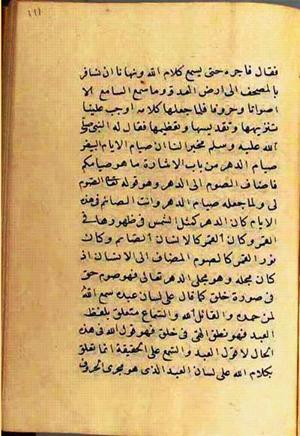 ١٩١
فقال فاجره حتى يسمع كلام الله ونهانا ان نسافر
بالمصحف الى ارض العدو وما سمع السامع الا
اصواتا وحروفا فلما جعلها كلامه اوجب علينا
تنزيهها وتقديسها وتعظيمها فقال له النبى صلى
الله عليه وسلم مخبرا لنا ان صيام الايام البيض
صيام الدهر من باب الاشارة ما هو صيامكم
فاضاف الصوم الى الدهر وهو قوله تعالى الصوم
لى ولما جعله صيام الدهر وانت الصائم فى هذه
الايام كان الدهر كمثل الشمس فى ظهورها فى
القمر وكان القمر كالانسان الصائم وكان
نور القمر كالصوم المضاف الى الانسان اذ
كان محله وهو مجلى الدهر تعالى فهو صوم حق
فى صورة خلق كما قال على لسان عبده سمع الله
لمن حمده والقائل الله والسماع متعلق بلفظ
العبد فهو نطق الحق فى خلق فهو قول الله فى هذه
الحال لا قول العبد والسمع على الحقيقة انما تعلق
بكلام الله على لسان العبد الذى هو مجرى الحرف